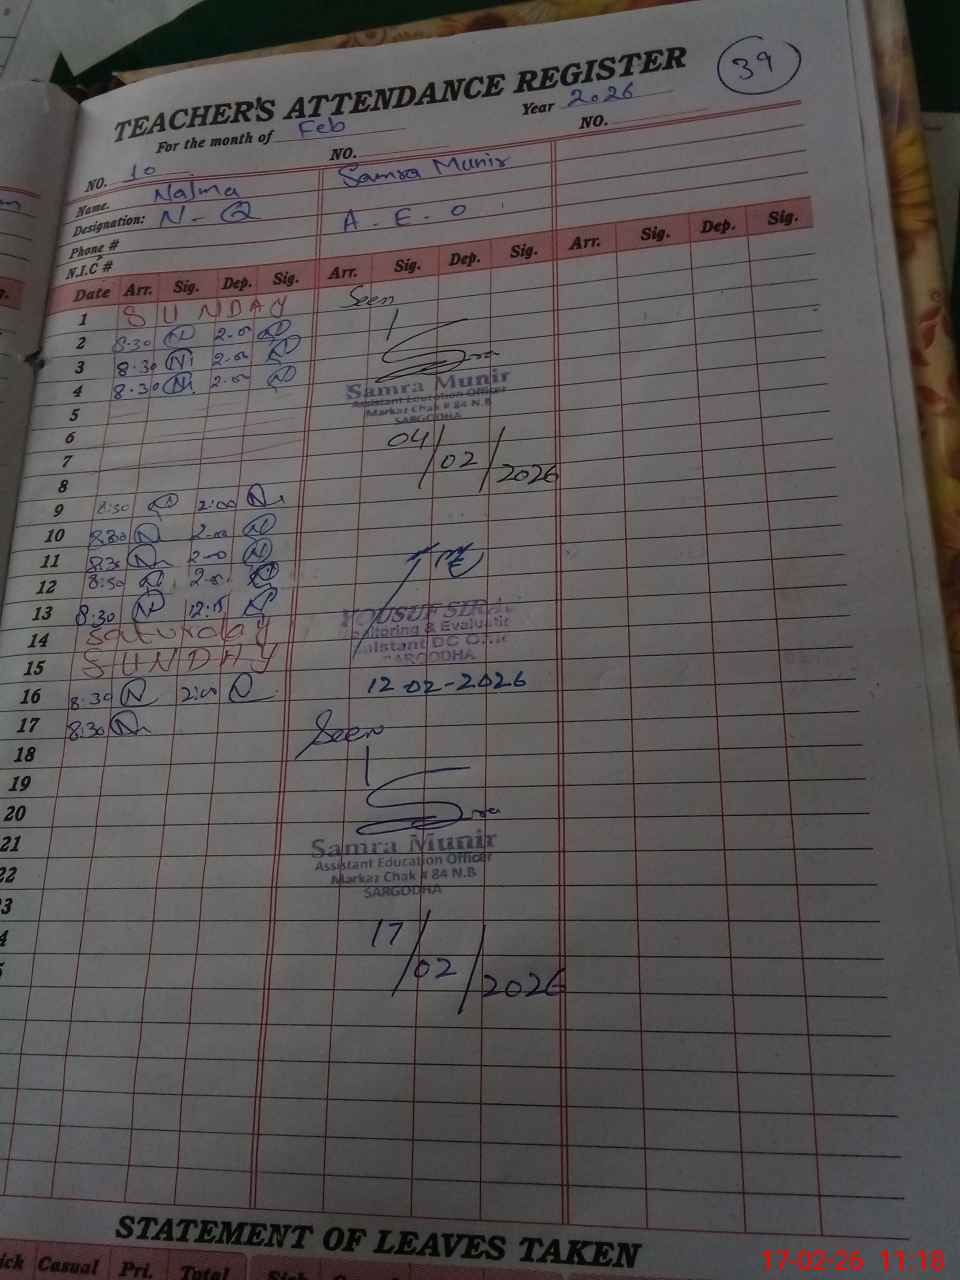 39
TEACHER'S ATTENDANCE REGISTER
For the month of Feb Year 2026
NO. 10 NO. NO.
Name. Najma Samra Munir
Designation: N-Q A.E.O
Phone #
N.I.C #
Date Arr. Sig. Dep. Sig. Arr. Sig. Dep. Sig. Arr. Sig. Dep. Sig.
1 SUNDAY Seen
2 8.30 N 2.00 N
3 8.30 N 2.00 N
4 8.30 N 2.00 N
Samra Munir
Assistant Education Officer
Markaz Chak # 84 N.B
SARGODHA
5
6 04/02/2026
7
8
9 8:30 N 2:00 N
10 8:30 N 2.00 N
11 8:30 N 2.00 N
12 8:30 N 2.00 N
13 8:30 N 12.15 N
YOUSUF
Monitoring & Evaluation
Assistant DC Office
SARGODHA
14 Saturday
15 SUNDAY
16 8:30 N 2:00 N 12-02-2026
17 8:30 N Seen
18
19
20
Samra Munir
Assistant Education Officer
Markaz Chak # 84 N.B
SARGODHA
21
22
3
4 17/02/2026
5
STATEMENT OF LEAVES TAKEN
ick Casual Pri. Total Sick
17-02-26 11:18